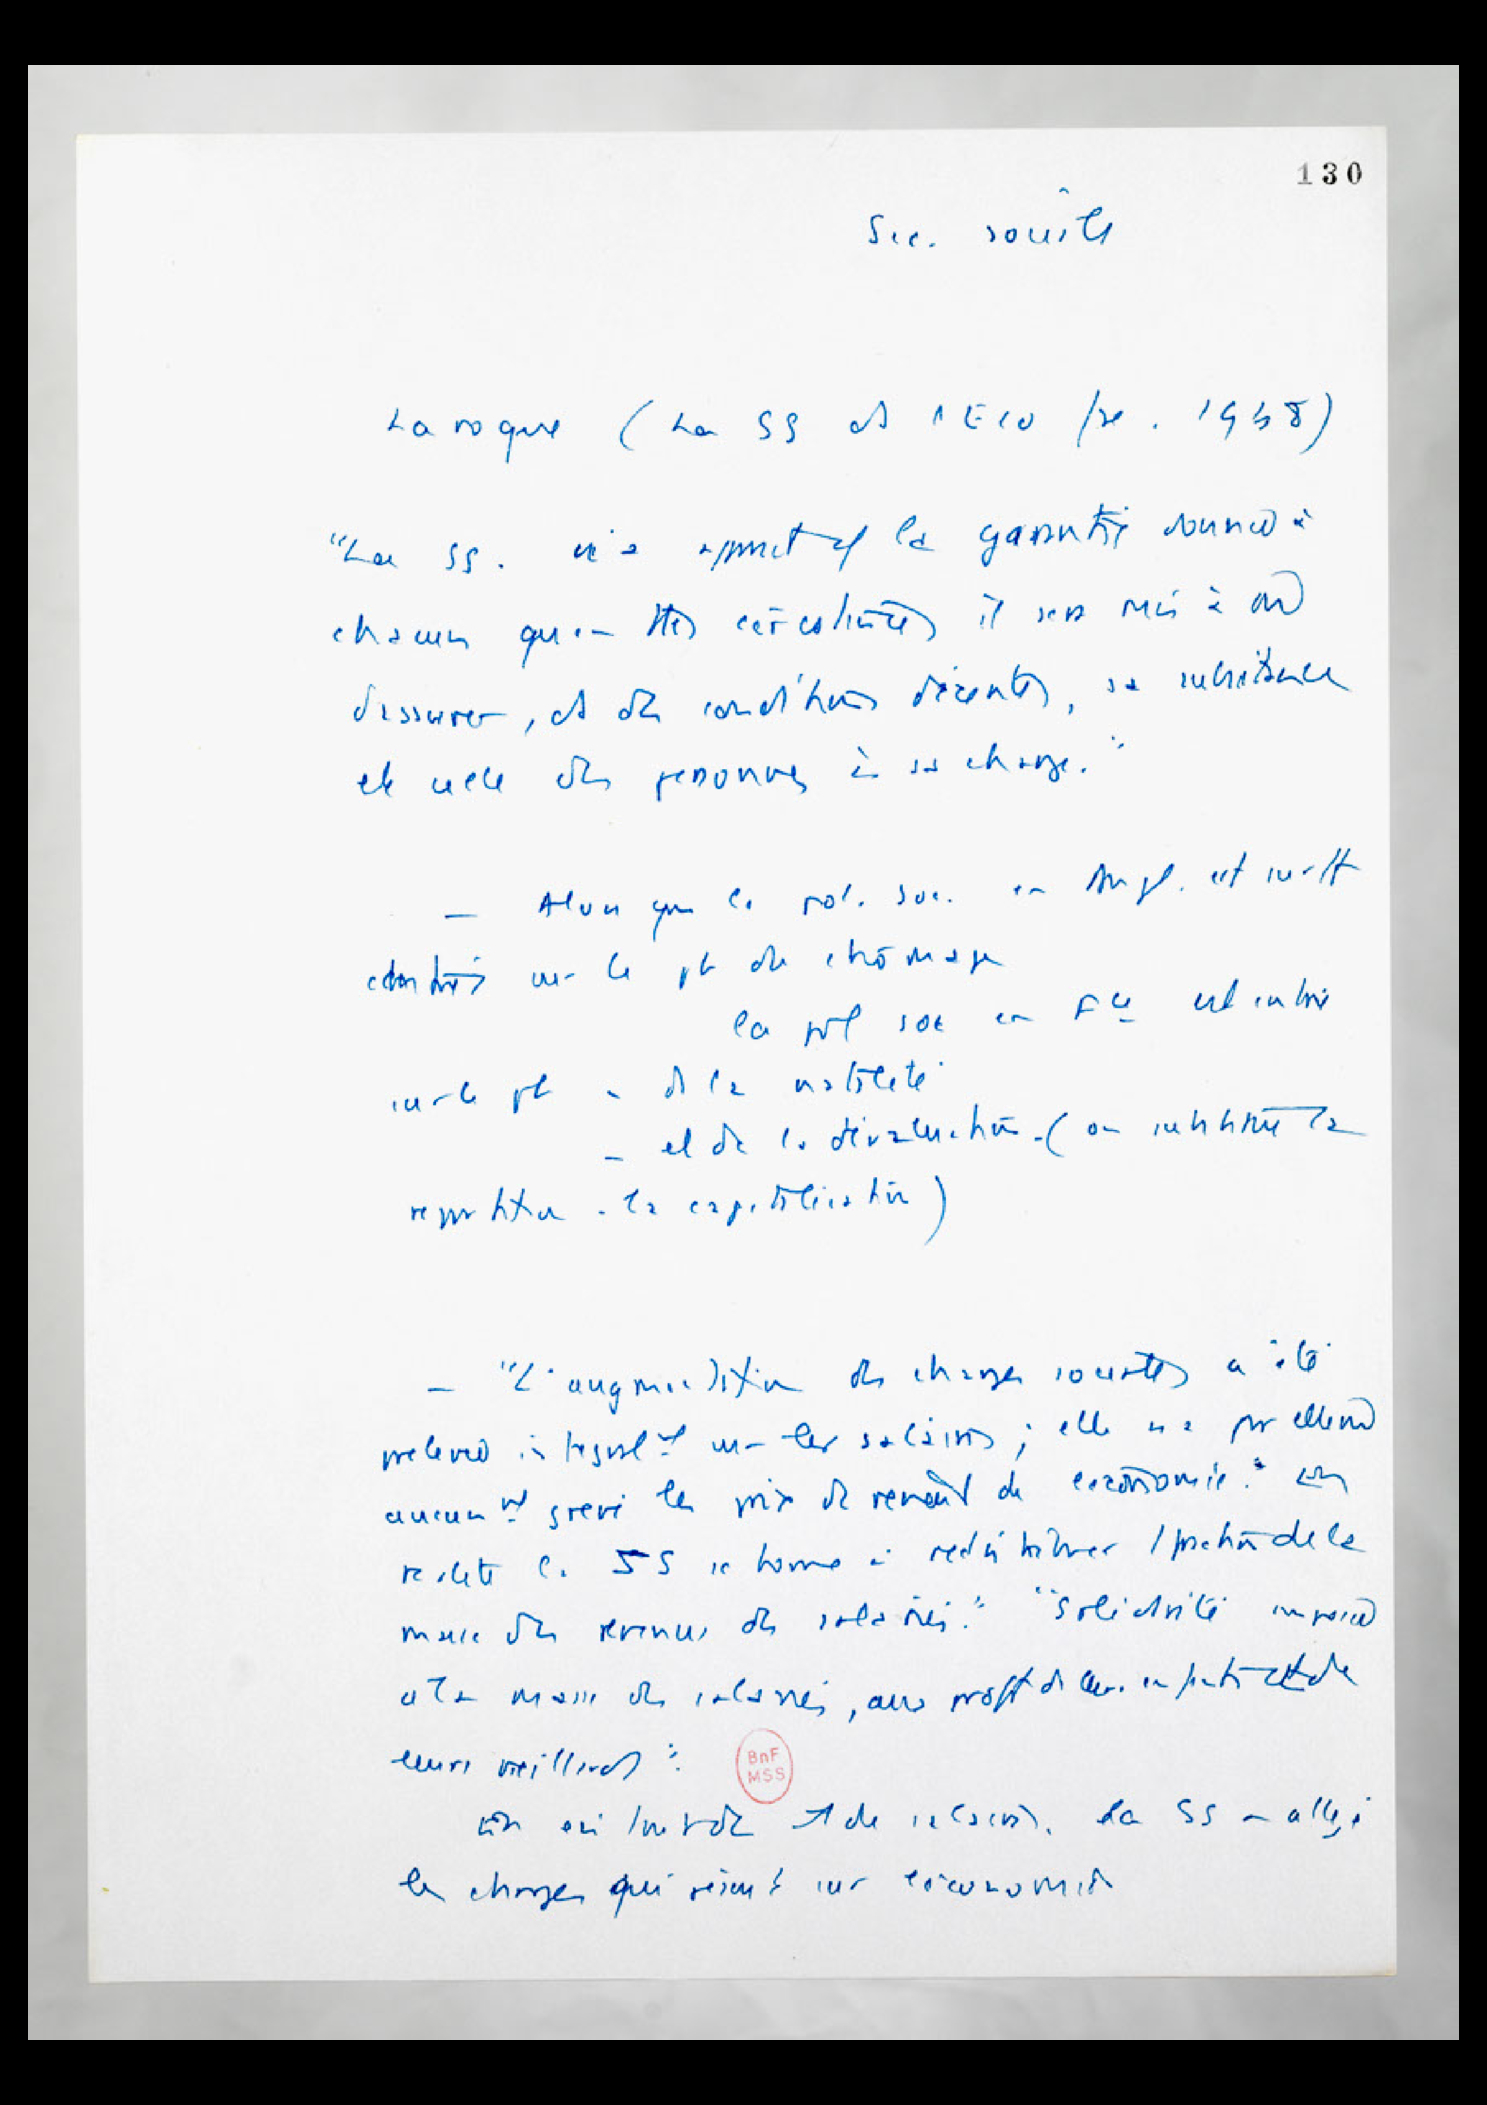 130
Sec. sociale
Laroque (La SS et l'Eco fse. 1948)
"La SS. la garantie donnée à
chacun qu'en ttes circonstances il sera mis à
d'assurer, ds des conditions décentes, sa subsistance
et celle des personnes à sa charge."
— Alors que la pol. soc. en Angl. est surtt
centrée sur le pb du chômage
la pol soc en Fce est centrée
sur le pb - de la natalité
- et de la dévaluation (on substitue la
repartition à la capitalisation)
— "L'augmentation des charges sociales a été
prélevée intégralt sur les salaires; elle n'a
aucunt grevé les prix de revient de l'économie." En
réalité la SS se borne à redistribuer 1 fraction de la
masse des revenus des salariés." "Solidarité imposée
à la masse des salariés, au profit de leurs enfants et de
leurs vieillards".
de salaires. La SS a allégé
les charges qui pèsent sur l'économie
BnF
MSS